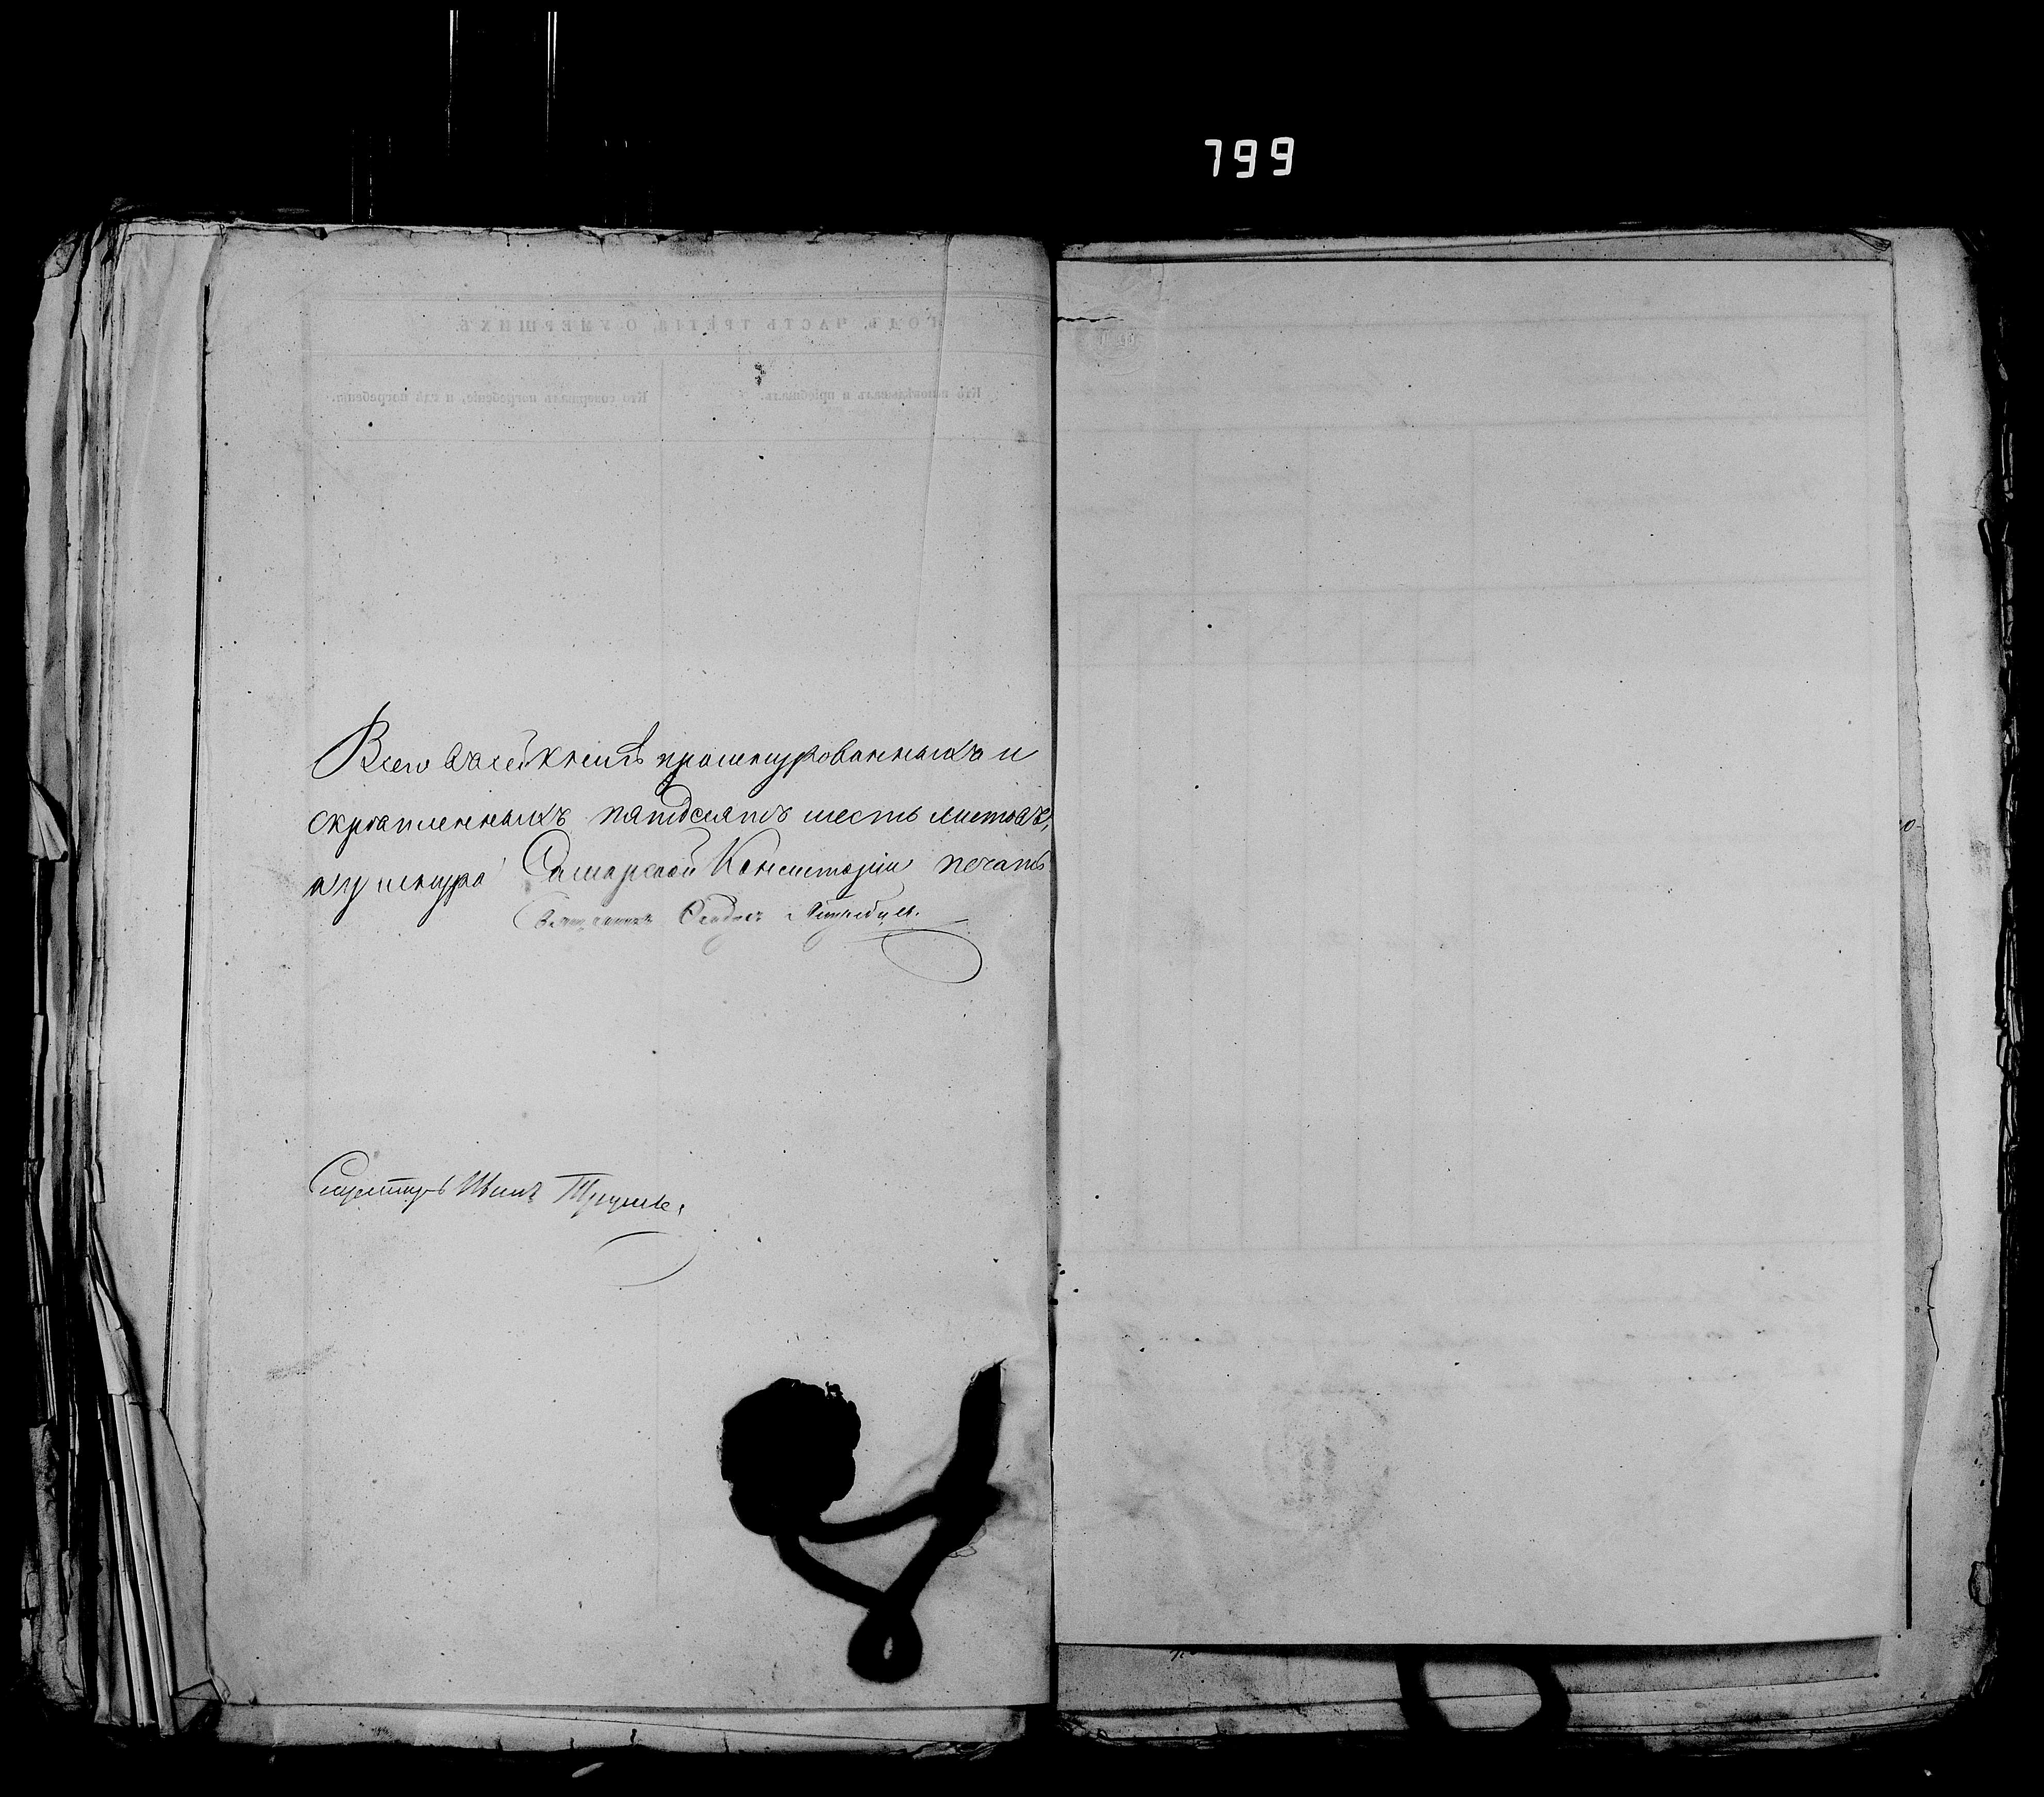 799
Всего въ сей книгѣ прошнурованныхъ и
скрѣпленныхъ пятдесятъ шесть листовъ,
а у шнура Самарской Консисторіи печать
Священникъ
Секретарь Иванъ
ГОДЪ, ЧАСТЬ ТРЕТІЯ, О УМЕРШИХЪ.
Кто исповѣдывалъ и пріобщалъ. Кто совершалъ погребеніе, и гдѣ погребены.